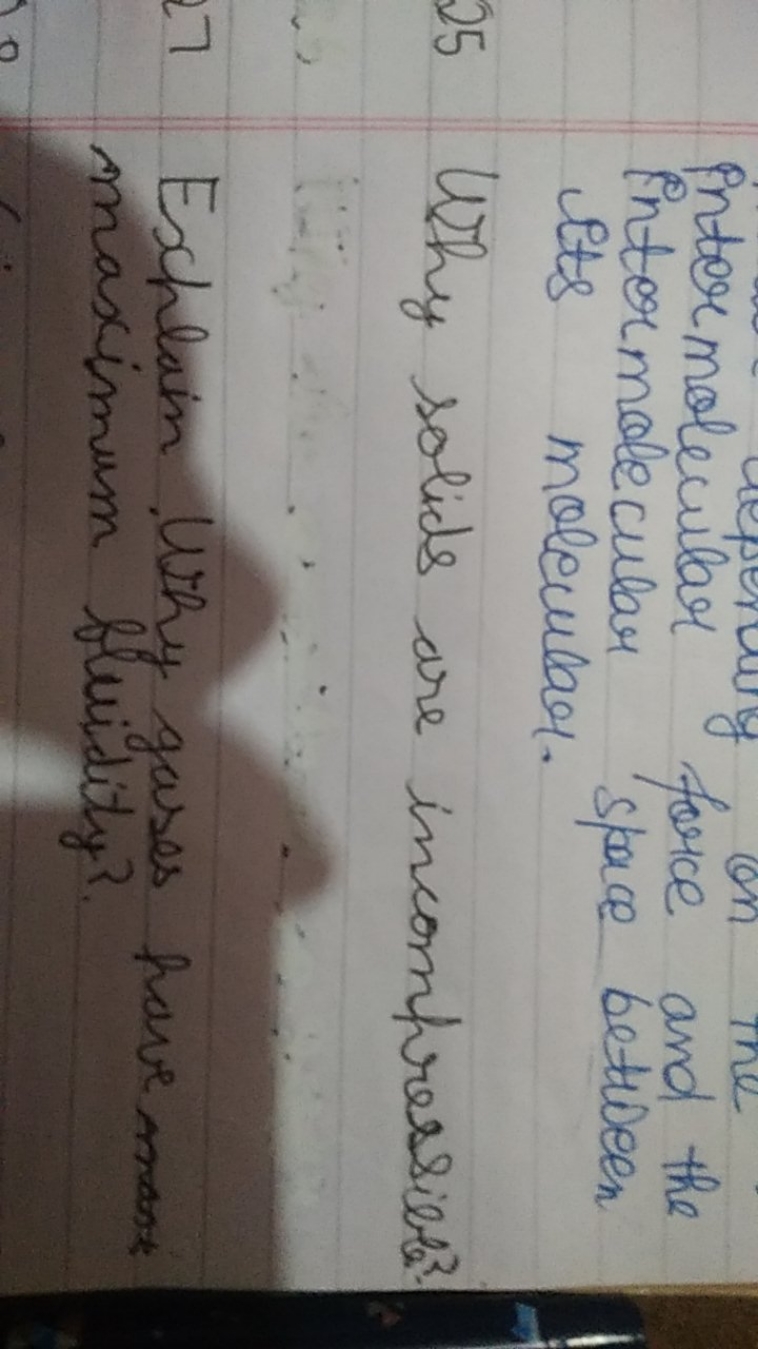 depending on the
intermolecular force and the
intermolecular space between
its molecular.
25 Why solids are incompressible?
27 Explain Why gases have
maximum fluidity?